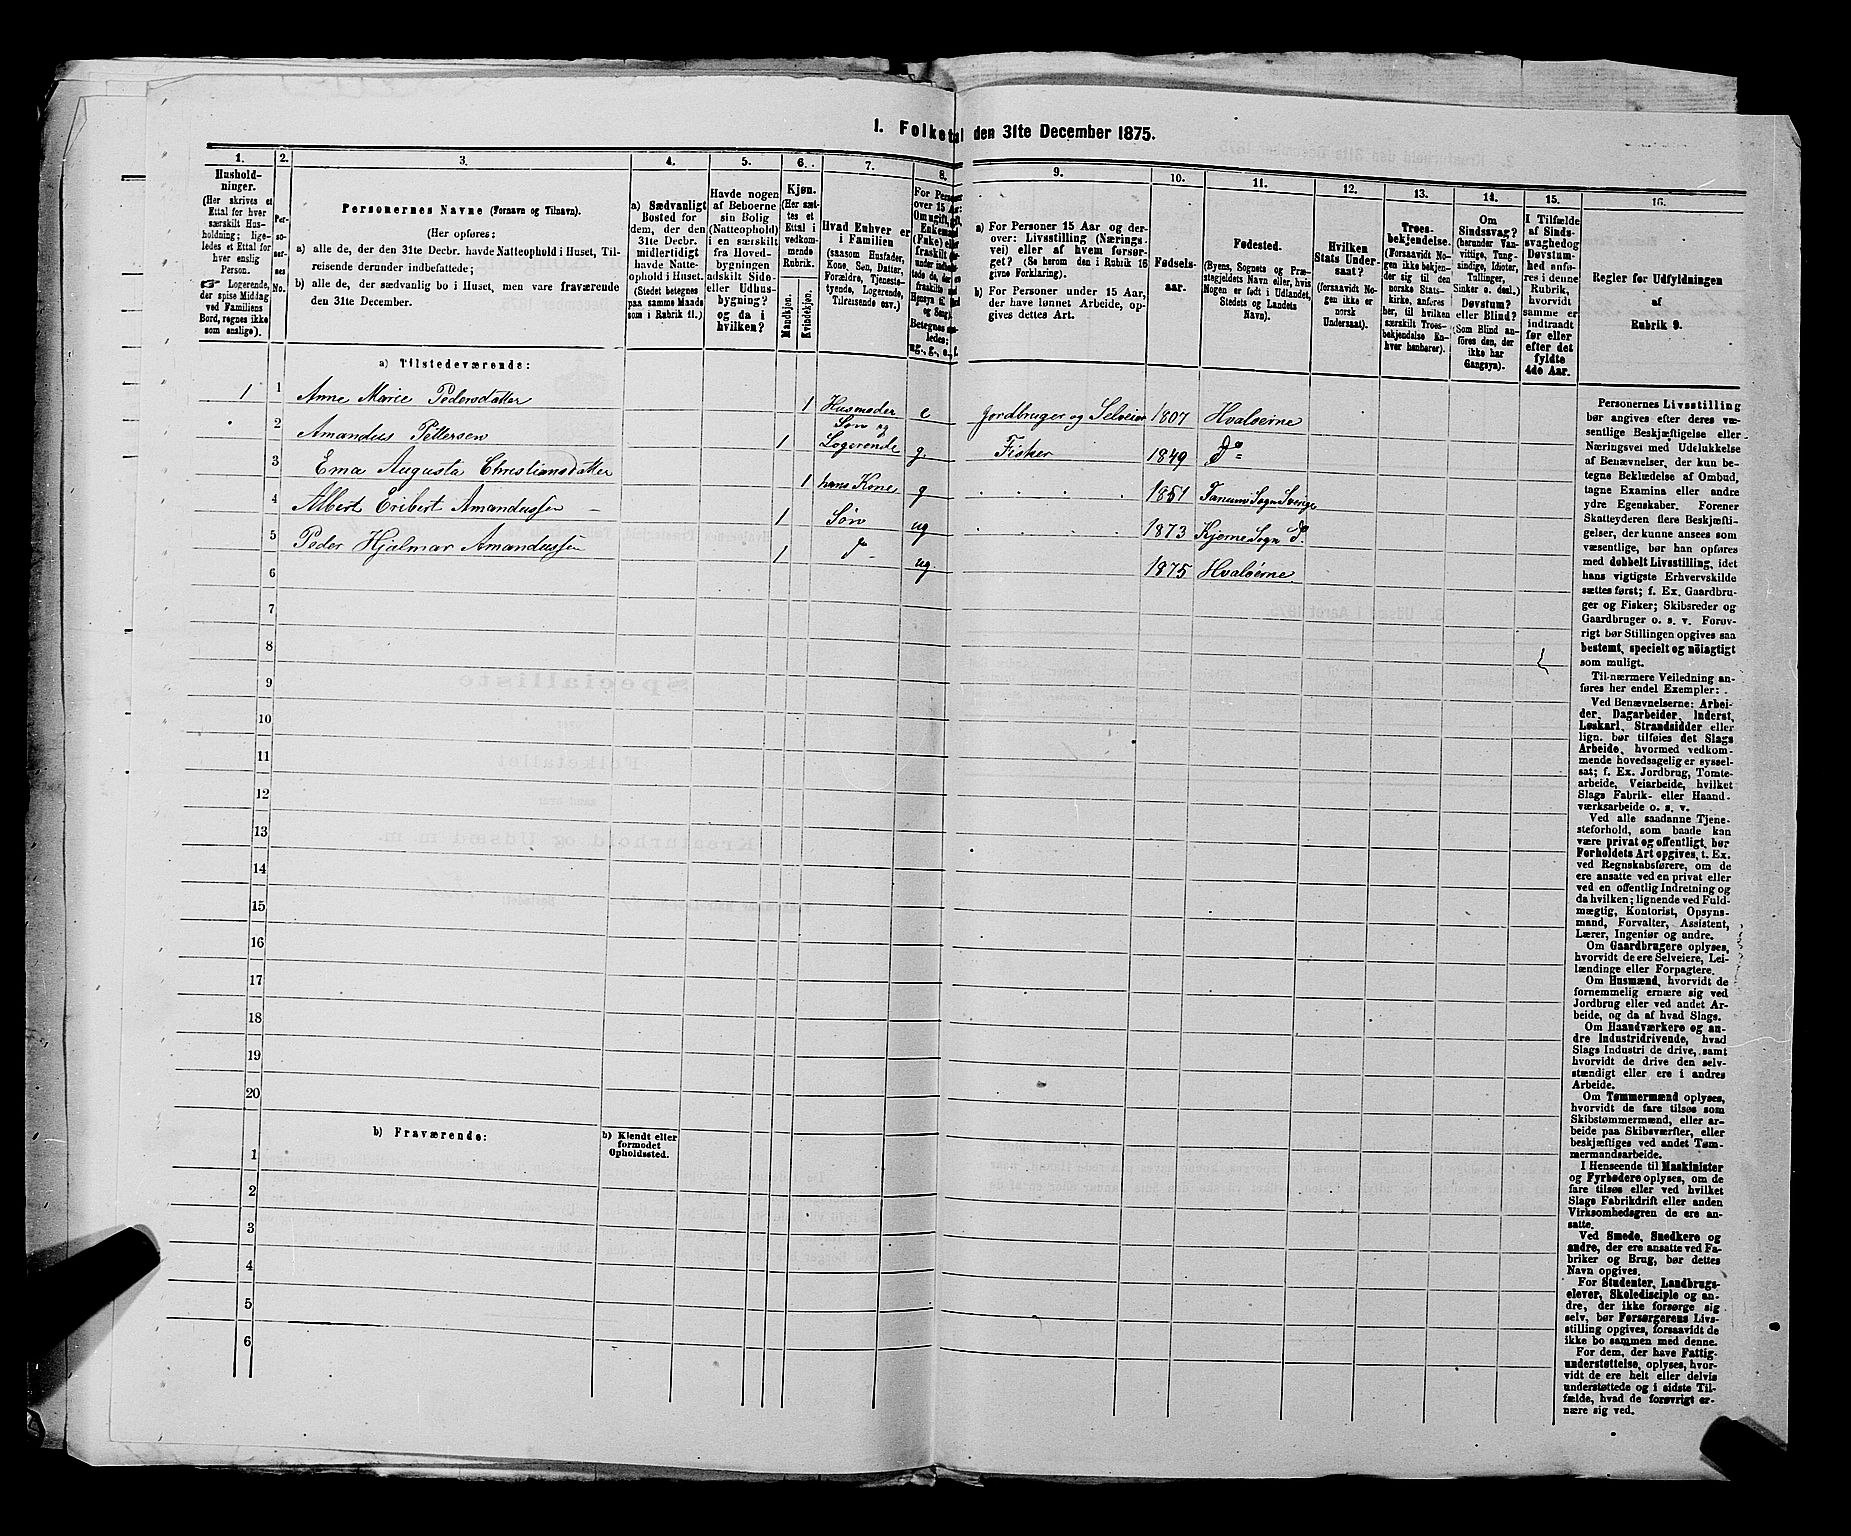 1. Folketal den 31te December 1875.
1. 2. 3. 4. 5. 6. 7. 8. 9. 10. 11. 12. 13. 14. 15. 16.
Hushold-
ninger.
(Her skrives et
Ettal for hver
særskilt Hus-
holdning; lige-
ledes et Ettal for
hver enslig
Person.
☞ Logerende,
der spise Middag
ved Familiens
Bord, regnes ikke
som enslige).
Per-
so-
ner-
nes
No.
Personernes Navne (Fornavn og Tilnavn).
(Her opføres:
a) alle de, der den 31te Decbr. havde Natteophold i Huset, Til-
reisende derunder indbefattede;
b) alle de, der sædvanlig bo i Huset, men vare fraværende
den 31te December.
a) Sædvanligt
Bosted for
dem, der den
31te Decbr.
midlertidigt
havde Natte-
ophold i Huset.
(Stedet betegnes
paa samme Maade
som i Rubrik 11.)
Havde nogen
af Beboerne
sin Bolig
(Natteophold)
i en særskilt
fra Hoved-
bygningen
adskilt Side-
eller Udhus-
bygning?
og da i
hvilken?
Kjøn.
(Her sæt-
tes et
Ettal i
vedkom-
mende
Rubrik.
Mandkjøn.
Kvindekjøn.
Hvad Enhver er
i Familien
(saasom Husfader,
Kone, Søn, Datter,
Forældre, Tjeneste-
tyende, Logerende,
Tilreisende osv.)
For Personer
over 15 Aar:
Om ugift, gift,
Enkemand
(Enke) eller
fraskilt
Betegnes saa-
ledes:
ug., g., e., f.
a) For Personer 15 Aar og der-
over: Livsstilling (Nærings-
vei) eller af hvem forsør-
get? (Se herom den i Rubrik 16
givne Forklaring).
b) For Personer under 15 Aar,
der have lønnet Arbeide, op-
gives dettes Art.
Fødsels-
aar.
Fødested.
(Byens, Sognets og Præ-
stegjeldets Navn eller, hvis
Nogen er født i Udlandet,
Stedets og Landets
Navn).
Hvilken
Stats Under-
saat?
(forsaavidt No-
gen ikke er
norsk
Undersaat).
Troes-
bekjendelse.
(Forsaavidt No-
gen ikke bekjen-
der sig til den
norske Stats-
kirke, anføres
her, til hvilken
særskilt Troes-
bekjendelse En-
hver henhører).
Om
Sindssvag?
(herunder Van-
vittige, Tung-
sindige, Idioter,
Tullinger,
Sinker o. desl.)
Døvstum?
eller Blind?
(Som Blind an-
føres den, der
ikke har
Gangsyn).
I Tilfælde
af Sinds-
svaghed og
Døvstum-
hed anfø-
res i denne
Rubrik,
hvorvidt
samme er
indtraadt
før eller
efter det
fyldte
4de Aar.
Regler for Udfyldningen
af
Rubrik 9.
a) Tilstedeværende:
1 1 Anne Marie Pedersdatter 1 Husmoder e Jordbruger og Selveier 1807 Hvaløerne
2 Amandus Pettersen 1 Søn og Logerende g Fisker 1849 do
3 Ema Augusta Christiansdatter 1 hans Kone g 1851 Tanums Sogn Sverige
4 Albert Eribert Amandussen 1 Søn ug 1873 Kjerne Sogn do
5 Peder Hjalmar Amandussen 1 do ug 1875 Hvaløerne
6
7
8
9
10
11
12
13
14
15
16
17
18
19
20
b) Fraværende:
b) Kjendt eller
formodet
Opholdssted.
1
2
3
4
5
6
Personernes Livsstilling
bør angives efter deres væ-
sentlige Beskjæftigelse eller
Næringsvei med Udelukkelse
af Benævnelser, der kun be-
tegne Beklædelse af Ombud,
tagne Examina eller andre
ydre Egenskaber. Forener
Skatteyderen flere Beskjæfti-
gelser, der kunne ansees som
væsentlige, bør han opføres
med dobbelt Livsstilling, idet
hans vigtigste Erhvervskilde
sættes først; f. Ex. Gaardbru-
ger og Fisker; Skibsreder og
Gaardbruger o. s. v. Forøv-
rigt bør Stillingen opgives saa
bestemt, specielt og nøiagtigt
som muligt.
Til nærmere Veiledning an-
føres her endel Exempler:
Ved Benævnelserne: Arbei-
der, Dagarbeider, Inderst,
Løskarl, Strandsidder eller
lign. bør tilføies det Slags
Arbeide, hvormed vedkom-
mende hovedsagelig er syssel-
sat; f. Ex. Jordbrug, Tomte-
arbeide, Veiarbeide, hvilket
Slags Fabrik- eller Haand-
værksarbeide o. s. v.
Ved alle saadanne Tjene-
steforhold, som baade kan
være privat og offentligt, bør
Forholdets Art opgives, t. Ex.
ved Regnskabsførere, om de
ere ansatte ved en privat eller
ved en offentlig Indretning og
da hvilken; lignende ved Fuld-
mægtig, Kontorist, Opsyns-
mand, Forvalter, Assistent,
Lærer, Ingeniør og andre.
Om Gaardbrugere oplyses,
hvorvidt de ere Selveiere, Lei-
lændinge eller Forpagtere.
Om Husmænd, hvorvidt de
fornemmelig ernære sig ved
Jordbrug eller ved andet Ar-
beide, og da af hvad Slags.
Om Haandværkere og an-
dre Industridrivende, hvad
Slags Industri de drive, samt
hvorvidt de drive den selv-
stændigt eller ere i andres
Arbeide.
Om Tømmermænd oplyses,
hvorvidt de fare tilsøs som
Skibstømmermænd, eller ar-
beide paa Skibsværfter, eller
beskjæftiges ved andet Tøm-
mermandsarbeide.
I Henseende til Maskinister
og Fyrbødere oplyses, om de
fare tilsøs eller ved hvilket
Slags Fabrikdrift eller anden
Virksomhedsgren de ere an-
satte.
Ved Smede, Snedkere og
andre, der ere ansatte ved Fa-
briker og Brug, bør dettes
Navn opgives.
For Studenter, Landbrugs-
elever, Skoledisciple og an-
dre, der ikke forsørge sig
selv, bør Forsørgerens Livs-
stilling opgives, forsaavidt de
ikke bo sammen med denne.
For dem, der have Fattig-
understøttelse, oplyses, hvor-
vidt de ere helt eller delvis
understøttede og i sidste Til-
fælde, hvad de forøvrigt er-
nære sig ved.